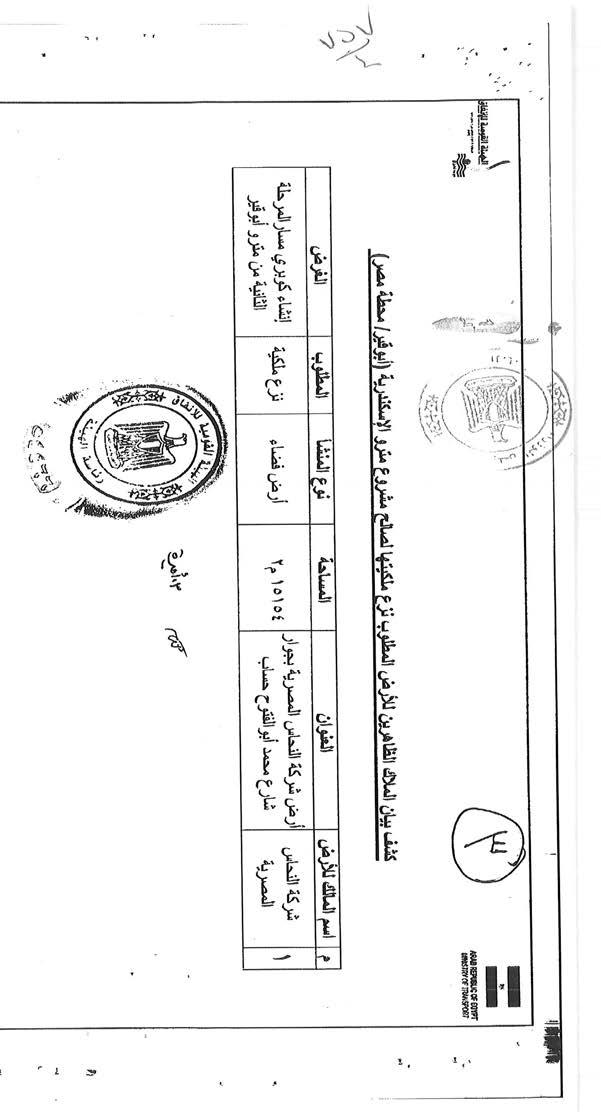 ARAB REPUBLIC OF EGYPT
MINISTRY OF TRANSPORT
الهيئة القومية للأنفاق
٣
كشف بيان الملاك الظاهرين للأرض المطلوب نزع ملكيتها لصالح مشروع مترو الإسكندرية (أبوقير/ محطة مصر)
م | اسم المالك للأرض | العنوان | المساحة | نوع المنشأ | المطلوب | الغرض
١ | شركة النحاس المصرية | أرض شركة النحاس المصرية بجوار شارع محمد أبوالفتوح حساب | ١٥١٥٤ م٢ | أرض فضاء | نزع ملكية | إنشاء كوبري مسار المرحلة الثانية من مترو أبوقير